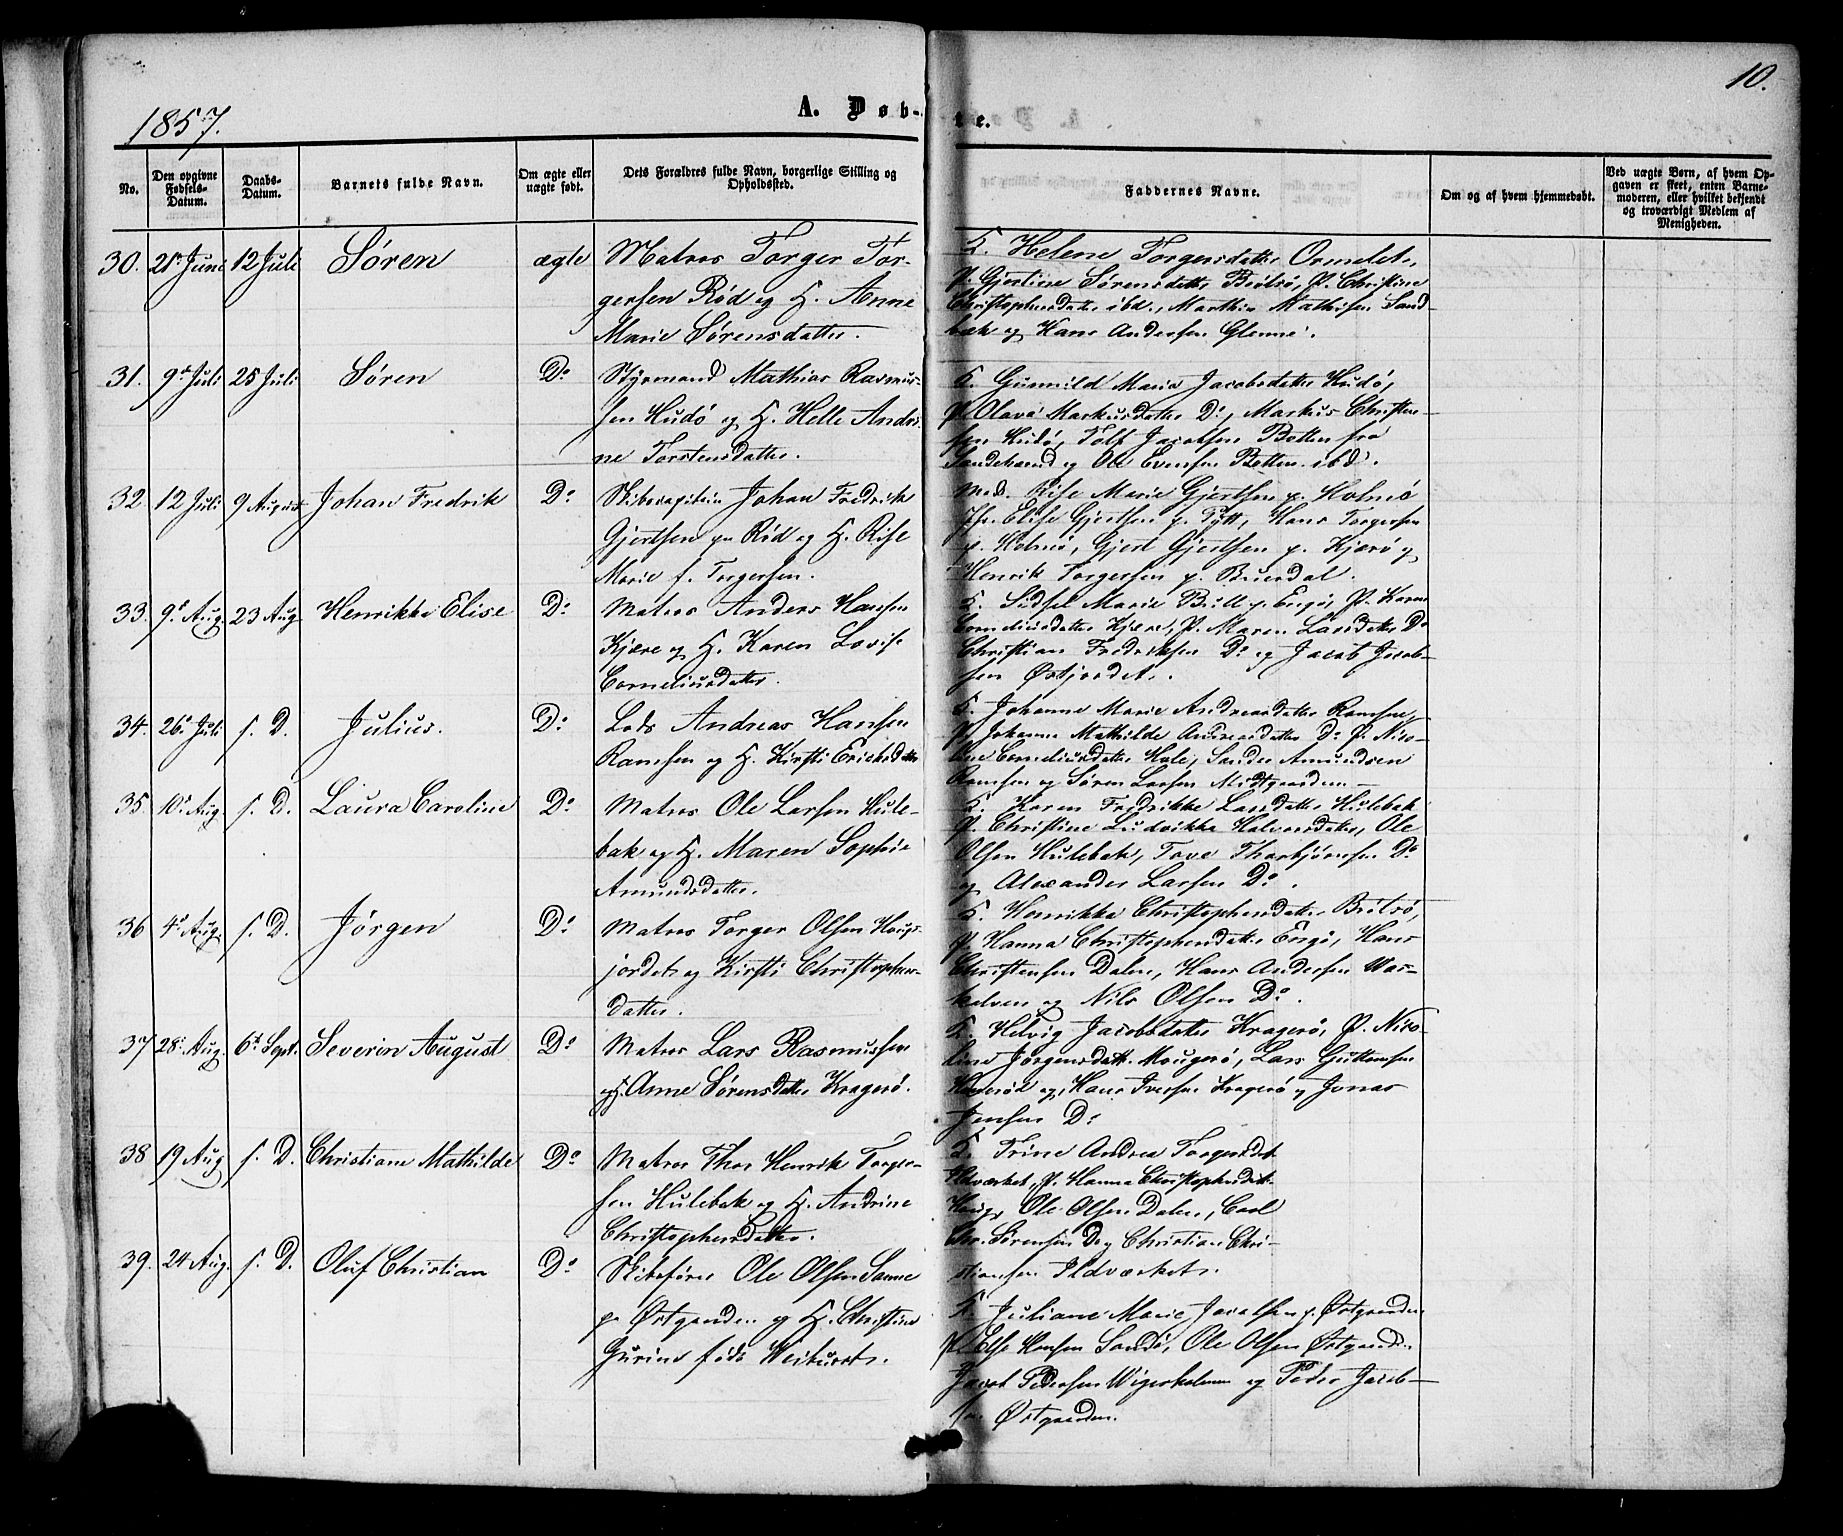 10.
1857.
A. Døb-
te.
No.
Den opgivne Fødsels-Datum.
Daabs-Datum.
Barnets fulde Navn.
Om ægte eller uægte født.
Dets Forældres fulde Navn, borgerlige Stilling og Opholdssted.
Faddernes Navne.
Om og af hvem hjemmedøbt.
Ved uægte Børn, af hvem Opgaven er skeet, enten Barnemoderen, eller hvilket bekjendt og troværdigt Medlem af Menigheden.
30. 21de Juni 12 Juli Søren ægte Matros Torger Tor-
gersen Rød og H. Anne
Marie Sørensdatter.
K. Helene Torgersdatter Ormelet,
P. Gjertine Sørensdatter Brøtsø, P. Christine
Christophersdatter ibd., Marthin Mathisen Sand-
bæk og Hans Andersen Glenne.
31. 9de Juli 25 Juli Søren Do Styrmand Mathias Rasmus-
sen Hudø og H. Helle Andri-
ne Torstensdatter.
K. Gunnild Marie Jacobsdatter Hudø,
P. Olava Markusdatter Do, Markus Christen-
sen Hudø, Tolf Jacobsen Botten fra
Sandeherred og Ole Evensen Botten ibd.
32. 12 Juli 9 August Johan Fredrik Do Skibscapitein Johan Fredrik
Gjertsen pa Rød og H. Rise
Marie f. Torgersen.
Mad. Rise Marie Gjertsen p. Holmø
Jfr. Elise Gjertsen p. Tytt, Hans Torgersen
p. Holmø, Gjert Gjertsen p. Kjærø og
Henrik Torgersen p. Buerdal.
33. 9de Aug. 23 Aug Henrikka Elise Do Matros Anders Hansen
Kjære og H. Karen Lovise
Corneliusdatter.
K. Sidsel Marie Bull p. Engø, P. Karen
Corneliusdatter Kjære, P. Maren Larsdatter Do
Christian Fredriksen Do og Jacob Jacob-
sen Østjordet.
34. 26de Juli s. D. Julius. Do Lods Andreas Hansen
Ramsen og H. Kirsti Ericksdatter
K. Johanne Marie Andreasdatter Ramsen,
P. Johanne Mathilde Andreasdatter Do P. Nico-
line Corneliusdatter Hole, Sander Amundsen
Ramsen og Søren Larsen Midtgaarden
35. 10de Aug s. D. Laura Caroline Do Matros Ole Larsen Hule-
bak og H. Maren Sophie
Amundsdatter.
K. Karen Fredrikke Larsdatter Hulebak
P. Christine Ludvikka Halvorsdatter, Ole
Olsen Hulebak, Tove Thorbjørnsen Do
og Alexander Larsen Do.
36 4de Aug. s. D. Jørgen Do Matros Torger Olsen Houg-
jordet og Kirsti Christopher-
datter.
K. Henrikka Christophersdatter Brøtsø,
P. Hanna Christophersdatter Engø, Hans
Christensen Dalen, Hans Andersen
og Nils Olsen Do.
37 28de Aug. 6te Sept. Severin August Do Matros Lars Rasmussen
og H. Anne Sørensdatter Kragerø.
K. Helvig Jacobsdatter Kragerø, P. Nico-
line Jørgensdatt. Mougerø, Lars Guttormsen
og, Hans Iversen Kragerø og Jonas
Jensen Do
38 19 Aug s. D. Christiane Mathilde Do Matros Thor Henrik Torger-
sen Hulebak og H. Andrine
Christophersdatter.
K. Trine Andrea Torgersdat
Ildværket, P. Hanna Christophersdat.
Houg, Ole Olsen Dalen, Carl
Chr. Sørensen Do og Christian Chri-
stiansen Ildværket.
39. 24 Aug. s. D. Oluf Christian Do Skibsfører Ole Olsen Sanne
p. Østgaarden og H. Christine
Gurine født Weikurst.
K. Juliane Marie Jacobsen p. Østgaarden
P. Else Hansen Sandø, Ole Olsen Østgaarden
Jacob Pedersen Wigerholmen og Peder Jacob-
sen Østgaarden.